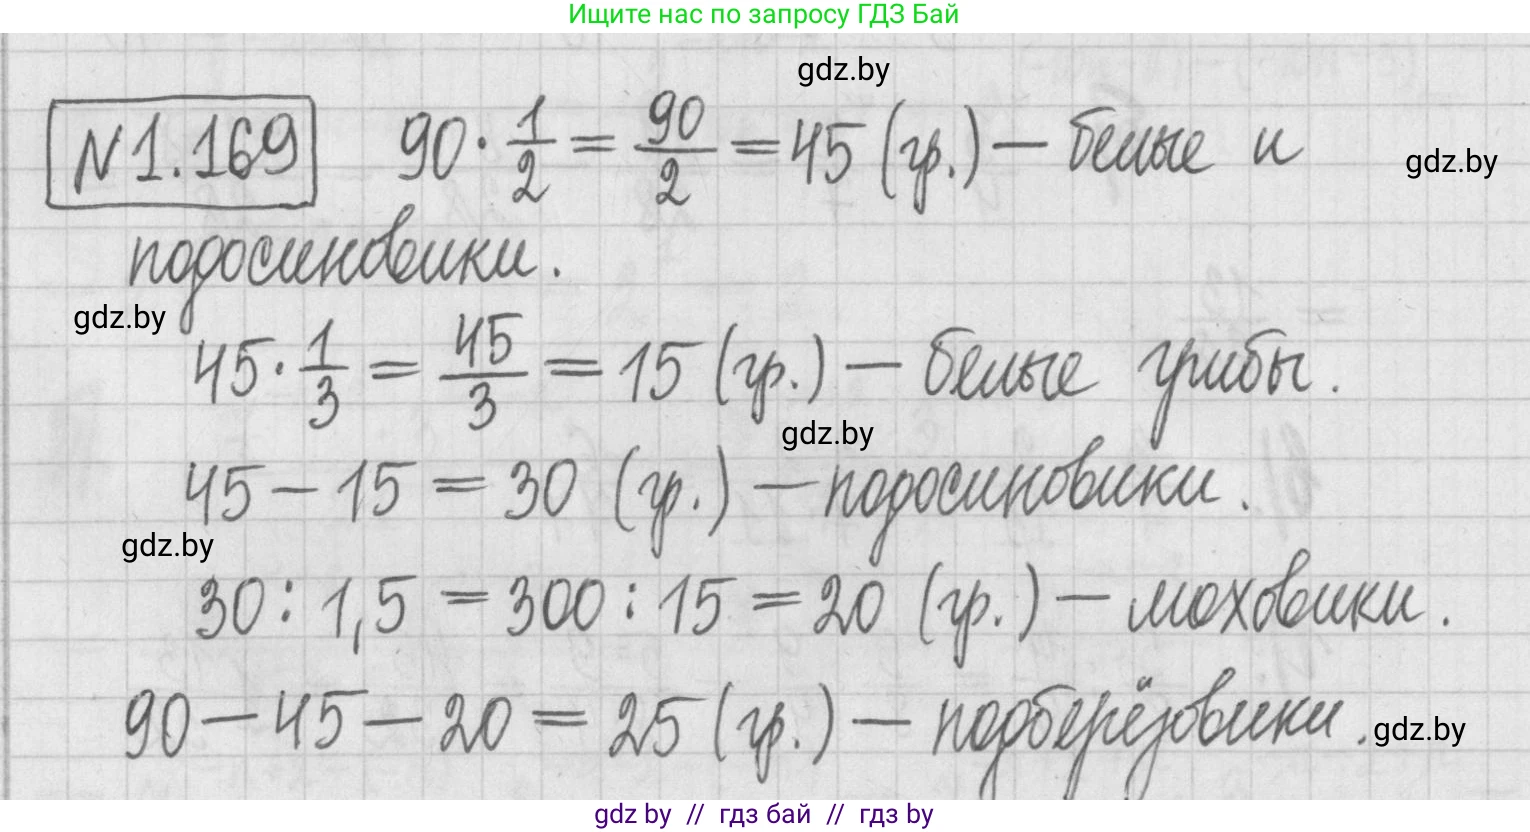 Ищите нас по запросу ГДЗ Бай
gdz.by
N1.169 90 · 1/2 = 90/2 = 45 (гр.) — белые и
gdz.by
подосиновики.
gdz.by
45 · 1/3 = 45/3 = 15 (гр.) — белые грибы.
gdz.by
45 – 15 = 30 (гр.) — подосиновики.
gdz.by
30 : 1,5 = 300 : 15 = 20 (гр.) — моховики.
90 – 45 – 20 = 25 (гр.) — подберёзовики.
gdz.by
gdz by // гдз бай // гдз by